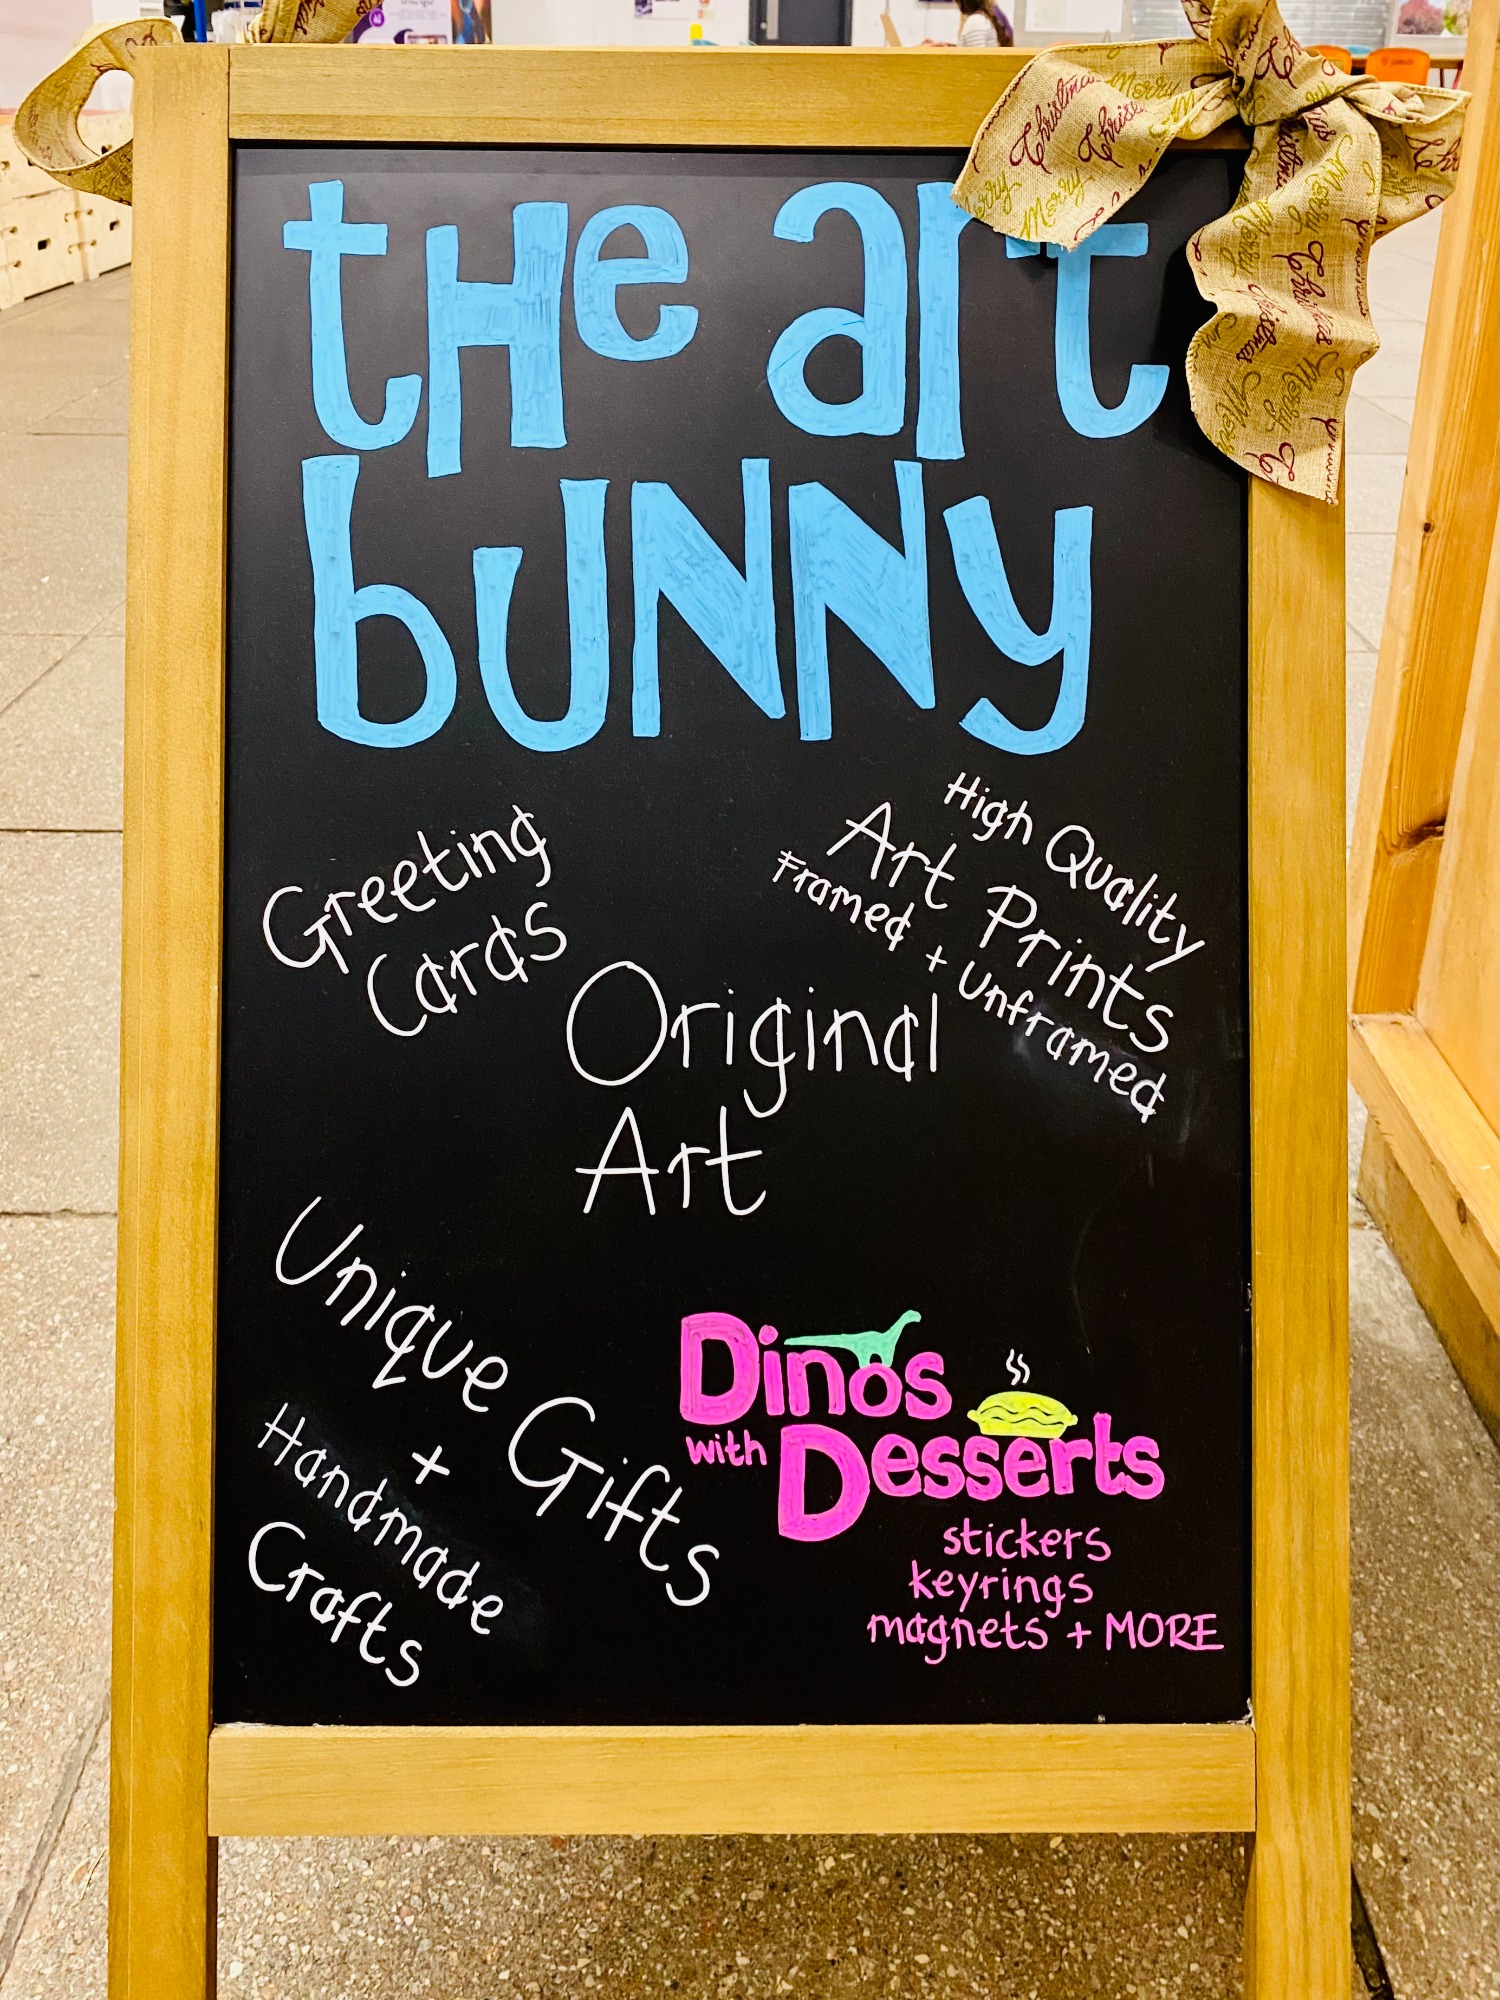 tHe art
bUNNy
Greeting
Cards
High Quality
Art Prints
Framed + Unframed
Original
Art
Unique Gifts
+
Handmade
Crafts
Dinos
with Desserts
stickers
keyrings
magnets + MORE
Christmas
Merry